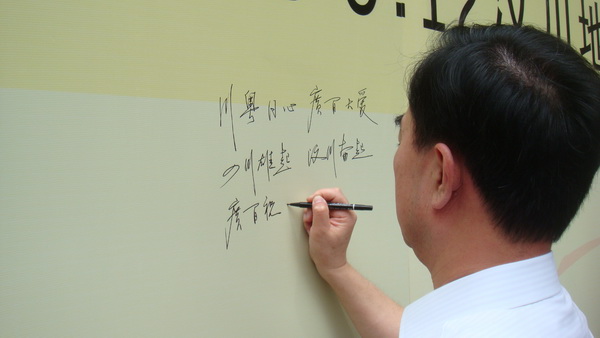 5.12汶川地
川粤同心 廣百大爱
四川雄起 汶川奋起
廣百祝